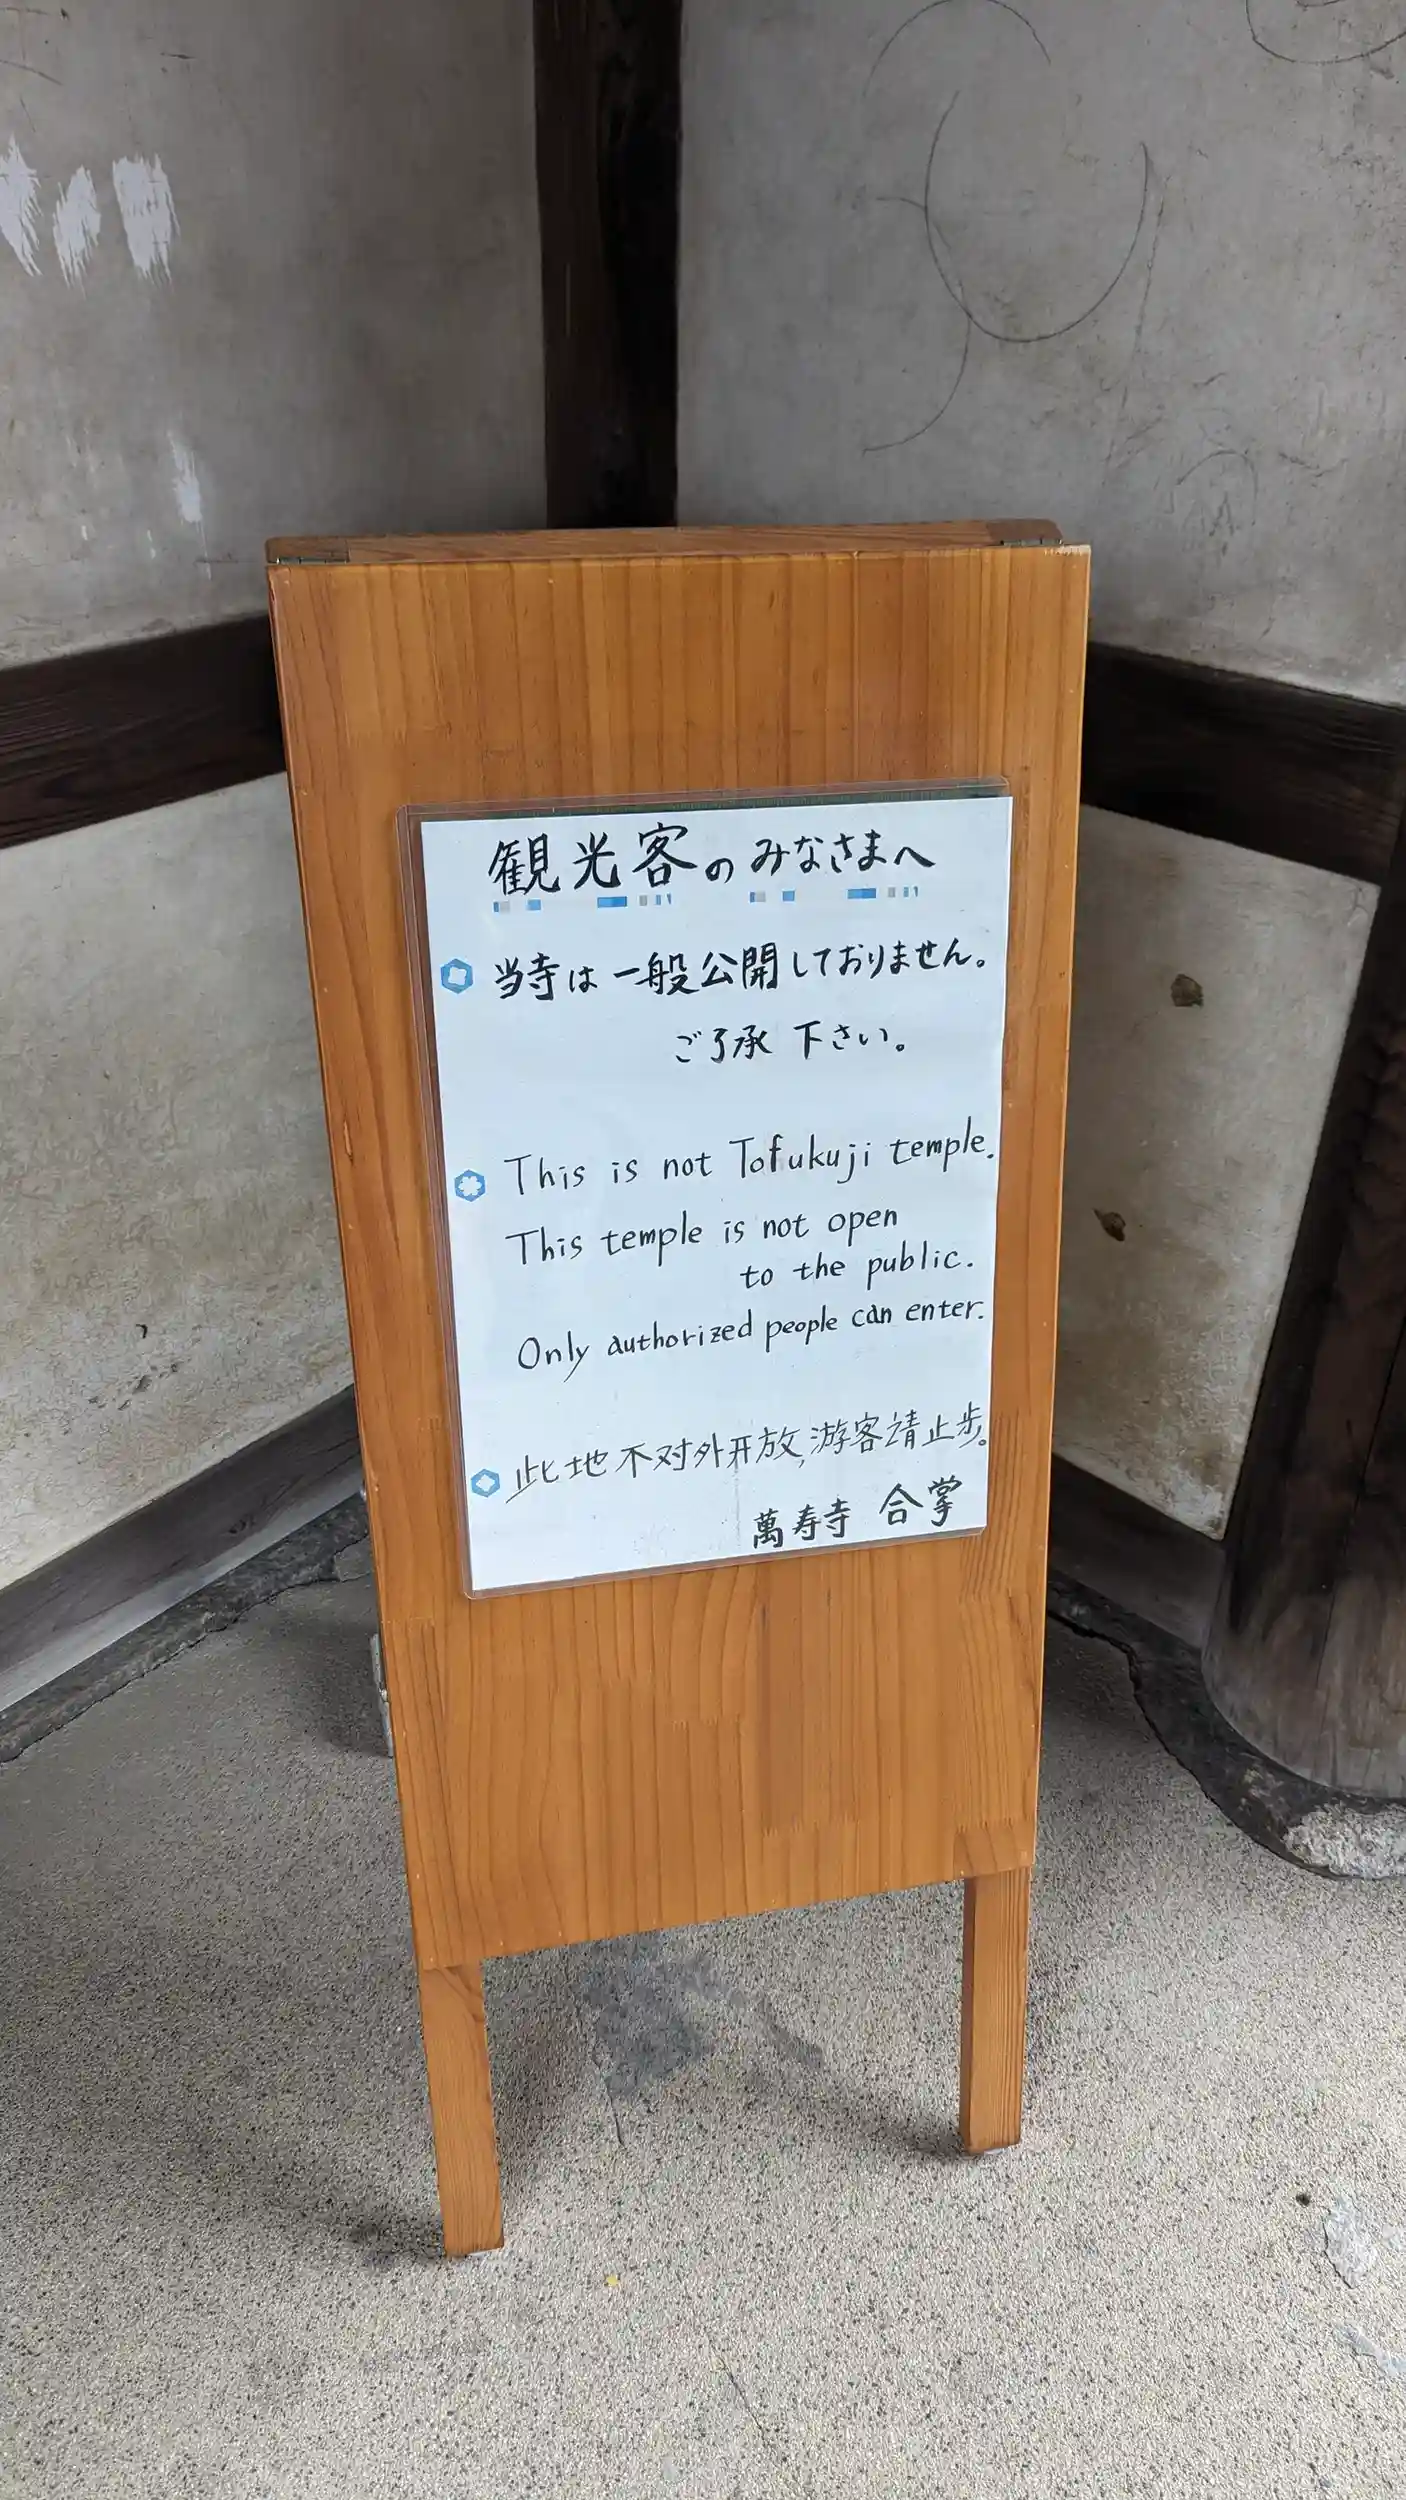 観光客のみなさまへ
当寺は一般公開しておりません。
ご了承下さい。
This is not Tofukuji temple.
This temple is not open
to the public.
Only authorized people can enter.
此地不对外开放,游客请止步。
萬寿寺 合掌